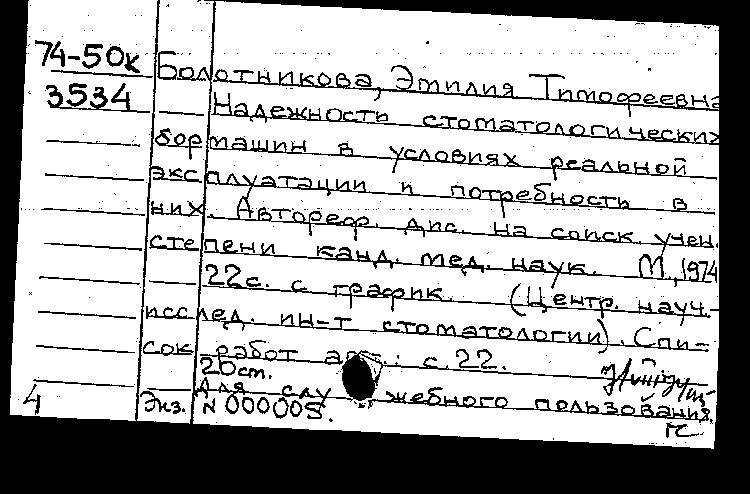 74-50к
3534
Болотникова, Эмилия Тимофеевна
Надежность стоматологических
бормашин в условиях реальной
эксплуатации и потребность в
них. Автореф. дис. на соиск. учен.
степени канд. мед. наук. М., 1974
22с. с график. (Центр. науч.-
исслед. ин-т стоматологии). Спи-
сок работ авт.: с. 22.
20ст.
Для служебного пользования.
4 Экз. N 000005. гс